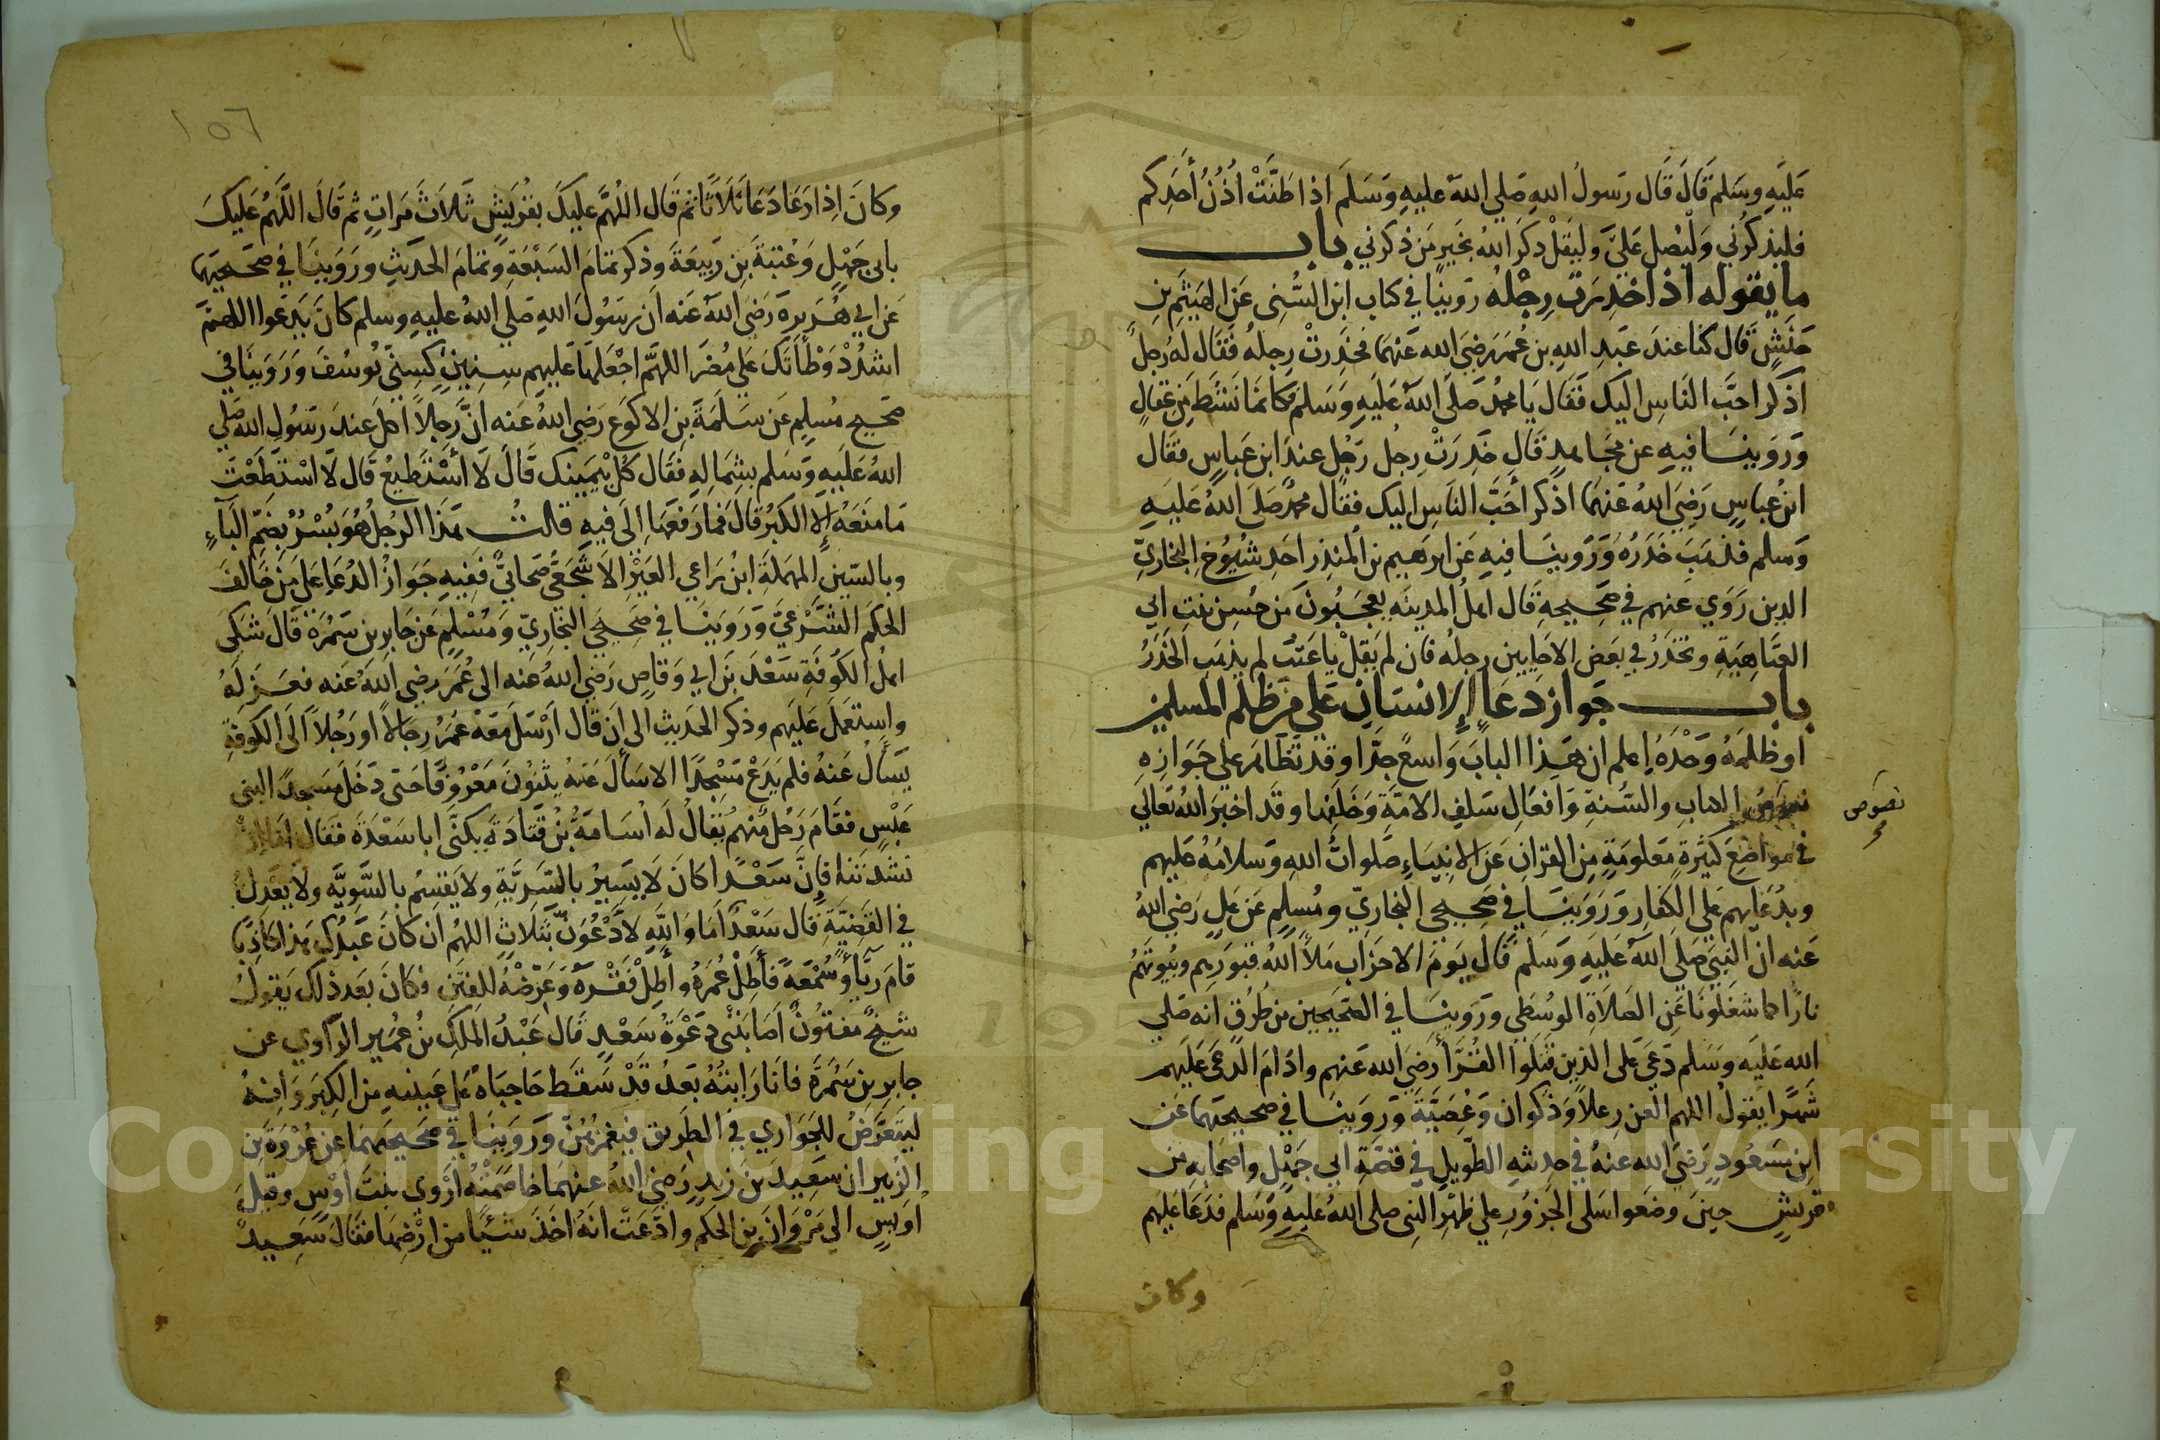 عليه وسلم قال قال رسول الله صلى الله عليه وسلم اذا طنت أذن أحدكم
فليذكرني وليصل علي وليقل ذكر الله بخير من ذكرني باب
ما يقوله اذا خدرت رجله روينا في كتاب ابن السني عن الهيثم بن
حنش قال كنا عند عبد الله بن عمر رضي الله عنهما فخدرت رجله فقال له رجل
اذكر احب الناس اليك فقال يا محمد صلى الله عليه وسلم فكانما نشط من عقال
وروينا فيه عن مجاهد قال خدرت رجل رجل عند ابن عباس فقال
ابن عباس رضي الله عنهما اذكر أحب الناس اليك فقال محمد صلى الله عليه
وسلم فذهب خدره وروينا فيه عن ابرهيم بن المنذر احد شيوخ البخاري
الدين روي عنهم في صحيحه قال اهل المدينه يعجبون من حسن بنت ابي
العتاهية وتخدر في بعض الاحايين رجله فان لم يقل يا عتب لم يذهب الخدر
باب جواز دعاء الإنسان علي من ظلم المسلمين
او ظلمه وحده اعلم ان هذا الباب واسع جدا وقد تظاهر علي جوازه
نصوص الكتاب والسنة وافعال سلف الامة وخلفها وقد اخبر الله تعالي
نصوص
في مواضع كثيرة معلومة من القران عن الانبياء صلوات الله وسلامه عليهم
وبدعايهم علي الكفار وروينا في صحيحي البخاري ومسلم عن علي رضي الله
عنه ان النبي صلى الله عليه وسلم قال يوم الاحزاب ملأ الله قبورهم وبيوتهم
نارا كما شغلونا عن الصلاة الوسطى وروينا في الصحيحين من طرق انه صلي
الله عليه وسلم دعي على الذين قتلوا القرأ رضي الله عنهم وادام الدعى عليهم
شهرا يقول اللهم العن رعلا وذكوان وعصية وروينا في صحيحهما عن
ابن مسعود رضي الله عنه في حديثه الطويل في قصة ابي جهل واصحابه من
قريش حين وضعوا سلى الجزور علي ظهر النبي صلى الله عليه وسلم فدعا عليهم
وكان
١٥٦
وكان إذا دعا دعا ثلاثا ثم قال اللهم عليك بقريش ثلاث مرات ثم قال اللهم عليك
بابي جهل وعتبة بن ربيعة وذكر تمام السبعة وتمام الحديث وروينا في صحيحيهما
عن ابي هريرة رضي الله عنه ان رسول الله صلي الله عليه وسلم كان يدعوا اللهم
اشدد وطأتك علي مضر اللهم اجعلها عليهم سنين كسني يوسف وروينا في
صحيح مسلم عن سلمة بن الاكوع رضي الله عنه ان رجلا اكل عند رسول الله صلي
الله عليه وسلم بشماله فقال كل بيمينك قال لا أستطيع قال لا استطعت
ما منعه إلا الكبر قال فما رفعها إلى فيه قالت هذا الرجل هو بسر بضم الباء
وبالسين المهملة ابن راعي العير الاشجعي صحابي ففيه جواز الدعاء على من خالف
الحكم الشرعي وروينا في صحيحي البخاري ومسلم عن جابر بن سمرة قال شكى
اهل الكوفة سعد بن ابي وقاص رضي الله عنه الى عمر رضي الله عنه فعزله
واستعمل عليهم وذكر الحديث الى ان قال ارسل معه عمر رجالا او رجلا الى الكوفة
يسأل عنه فلم يدع مسجدا الا سأل عنه يثنون معروفا حتى دخل مسجد البني
عبس فقام رجل منهم يقال له اسامة بن قتادة يكنى ابا سعدة فقال
نشدتنا فإن سعدا كان لا يسير بالسرية ولا يقسم بالسويه ولا يعدل
في القضية قال سعد اما والله لادعون بثلاث اللهم ان كان عبدك هذا كاذبا
قام ريأ وسمعة فأطل عمره وأطل فقره وعرضه للفتن فكان بعد ذلك يقول
شيخ مفتون أصابتني دعوة سعد قال عبد الملك بن عمير الراوي عن
جابر بن سمرة فانا رايته بعد قد سقط حاجباه على عينيه من الكبر وإنه
ليتعرض للجواري في الطريق فيغمزهن وروينا في صحيحيهما عن عروة بن
الزبير ان سعيد بن زيد رضي الله عنهما خاصمته اروى بنت اوس وقيل
اويس الي مروان بن الحكم وادعت انه اخذ شيئا من ارضها فقال سعيد
Copyright King Saud University